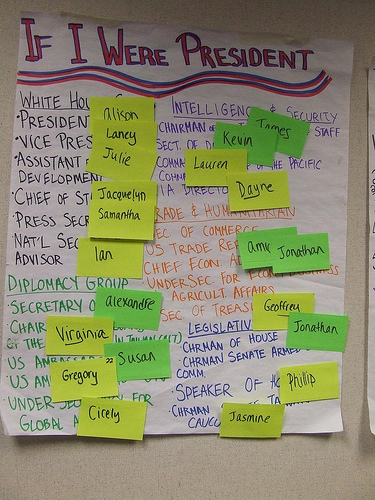 IF I WERE PRESIDENT
WHITE HOU
·PRESIDEN
·VICE PRES
·ASSISTANT
DEVELOPMEN
·CHIEF OF ST
·PRESS SEC
·NAT'L SEC
ADVISOR
alison
Laney
Julie
Jacquelyn
Samantha
Ian
INTELLIGENC & SECURITY
CHAIRMAN STAFF
SECT. OF D
COMMA OF THE PACIFIC
COMM
IA DIRECTO
James
Kevin
Lauren
Dayne
RADE & HUM
EC OF COMMERCE
US TRADE REP
CHIEF ECON A
UNDERSEC FOR E
AGRICULT AFFAIRS
SEC OF TREAS
amy
Jonathan
Geoffrey
DIPLOMACY GROUP
·SECRETARY O
·CHAIR
OF THE
·US AMBASSA
·US AM
·UNDER SE
GLOBAL A
alexandre
Virginia
Susan
Gregory
Cicely
LEGISLATIV
·CHRMAN OF HOUSE
·CHRMAN SENATE ARMED
COMM.
·SPEAKER OF HO
·CHRMAN
CAUCU
Jonathan
Phillip
Jasmine